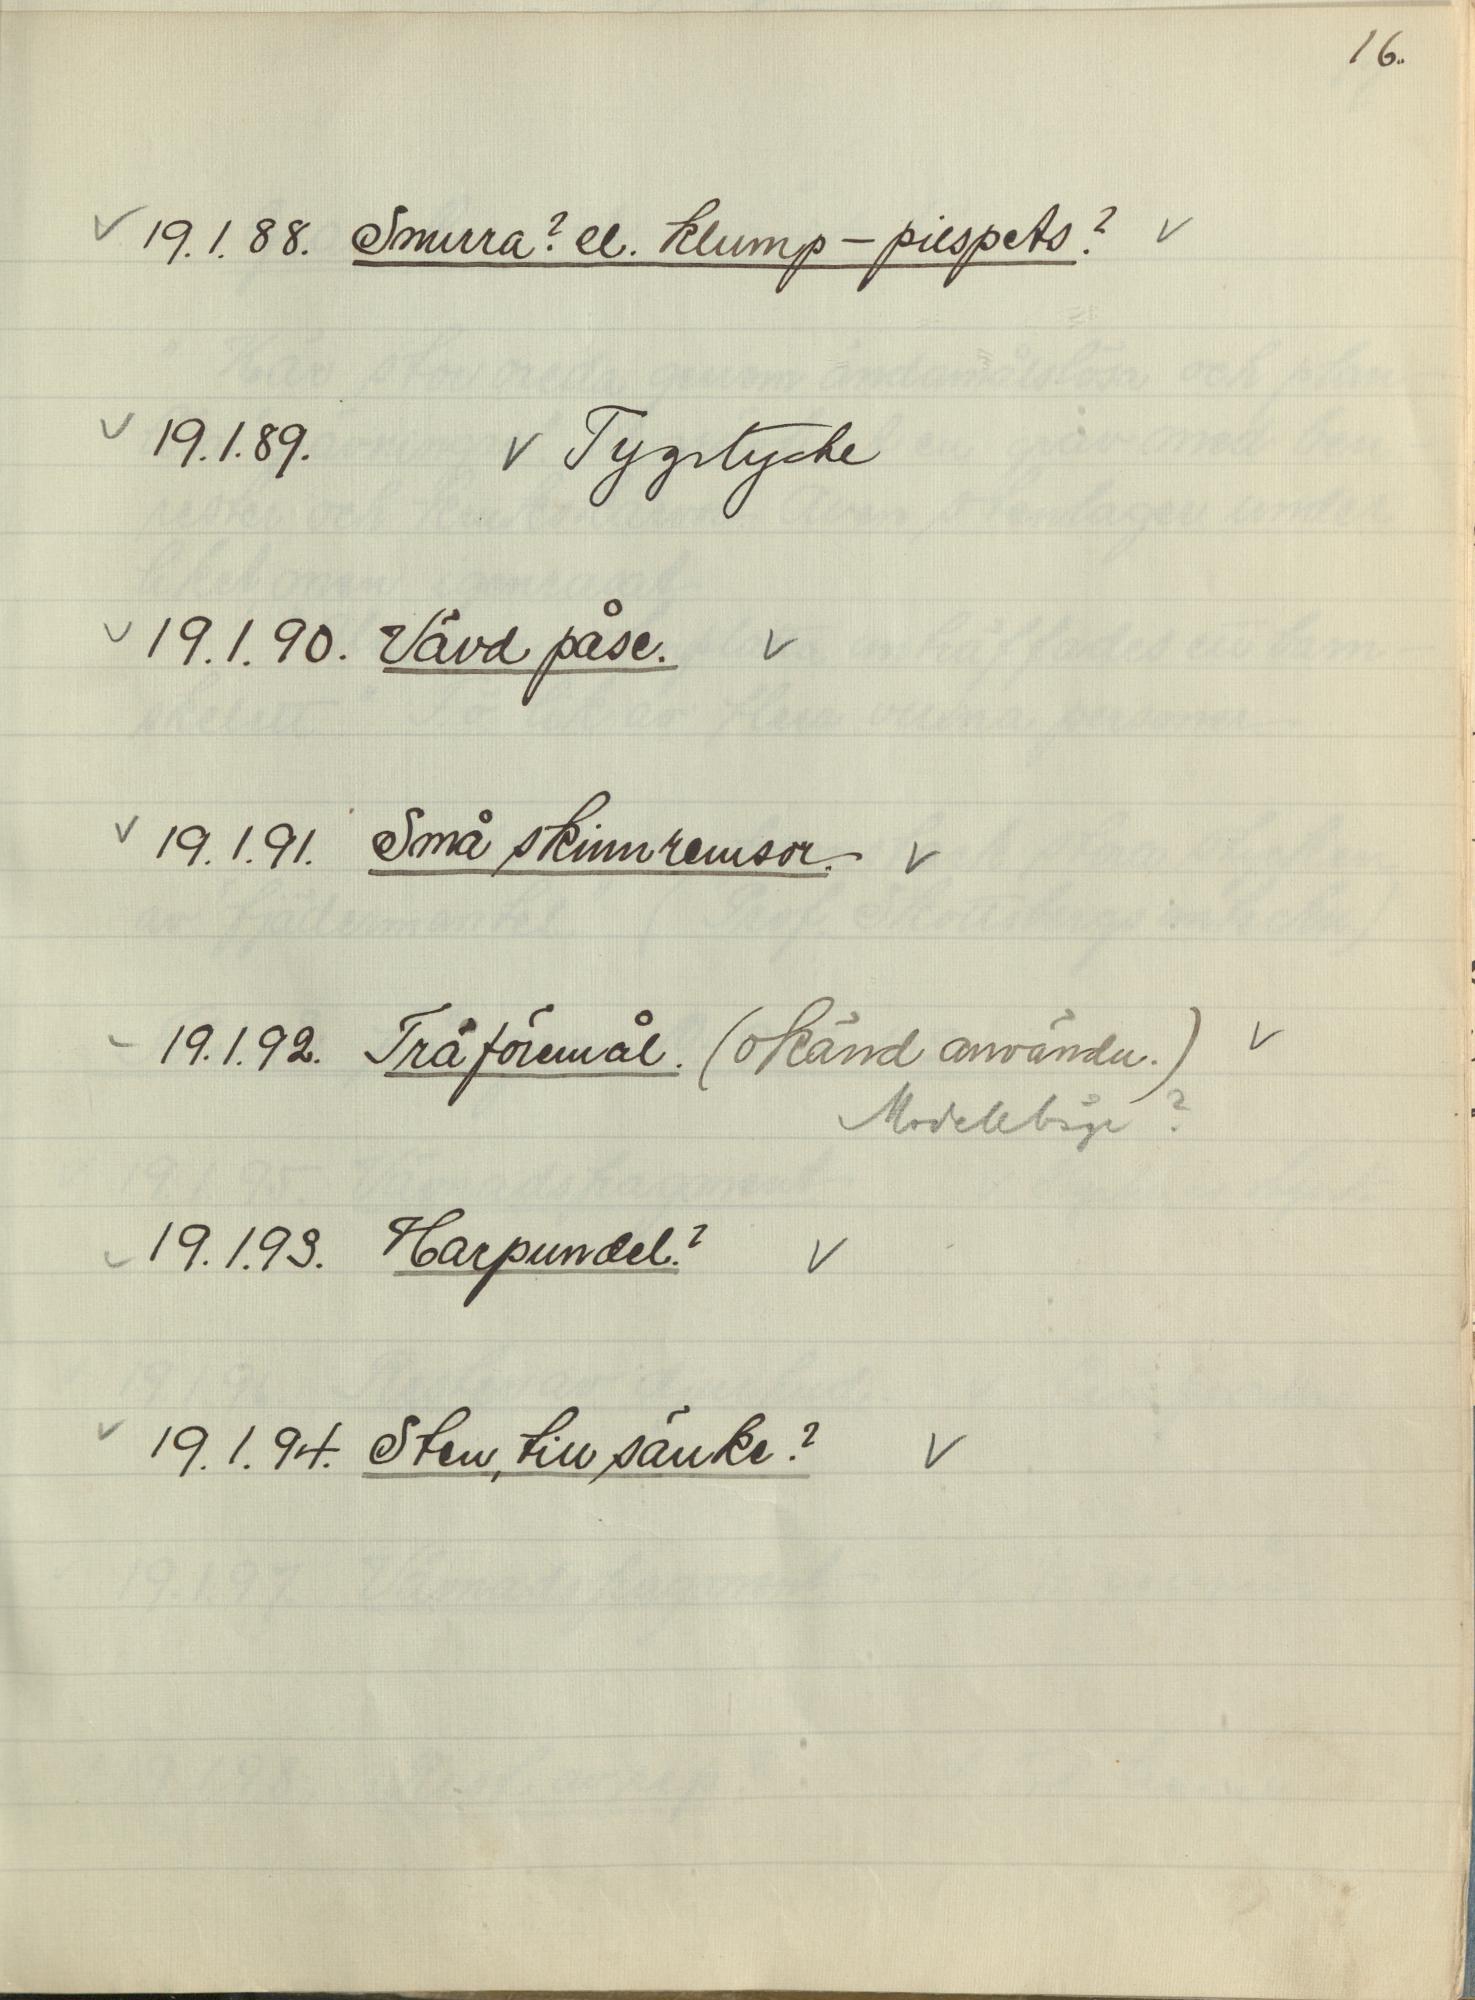 16.
✓ 19.1.88. Snurra? el. klump-pilspets? ✓
✓ 19.1.89. ✓ Tygstycke
✓ 19.1.90. Vävd påse. ✓
✓ 19.1.91. Små skinnremsor. ✓
19.1.92. Träföremål. (okänd användn.) ✓
Modellbåge?
19.1.93. Harpundel.? ✓
✓ 19.1.94. Sten, till sänke.? ✓